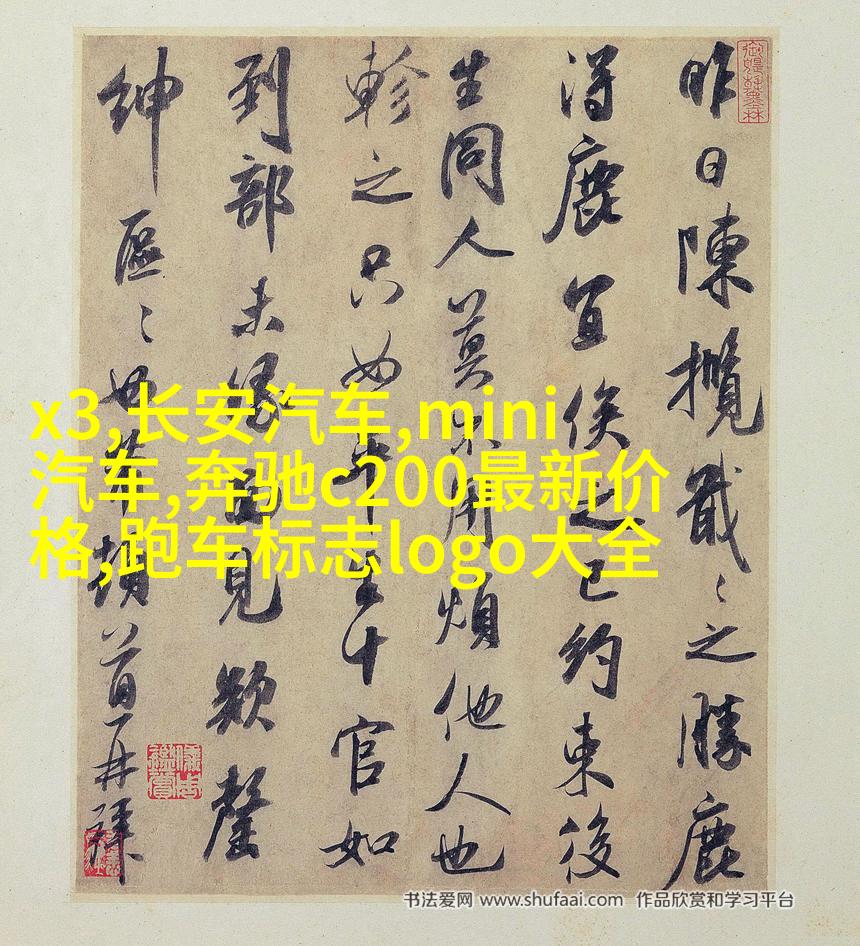 昨日陳攬戢〻之勝鹿
得鹿宜俟之已約束後
生同人莫不用煩他人也
軫之只如平生十官如
到部未緣面見欵罄
紳區〻頓首再拜
x3,长安汽车,mini
汽车,奔驰c200最新价
格,跑车标志logo大全
书法爱网 www.shufaai.com 作品欣赏和学习平台